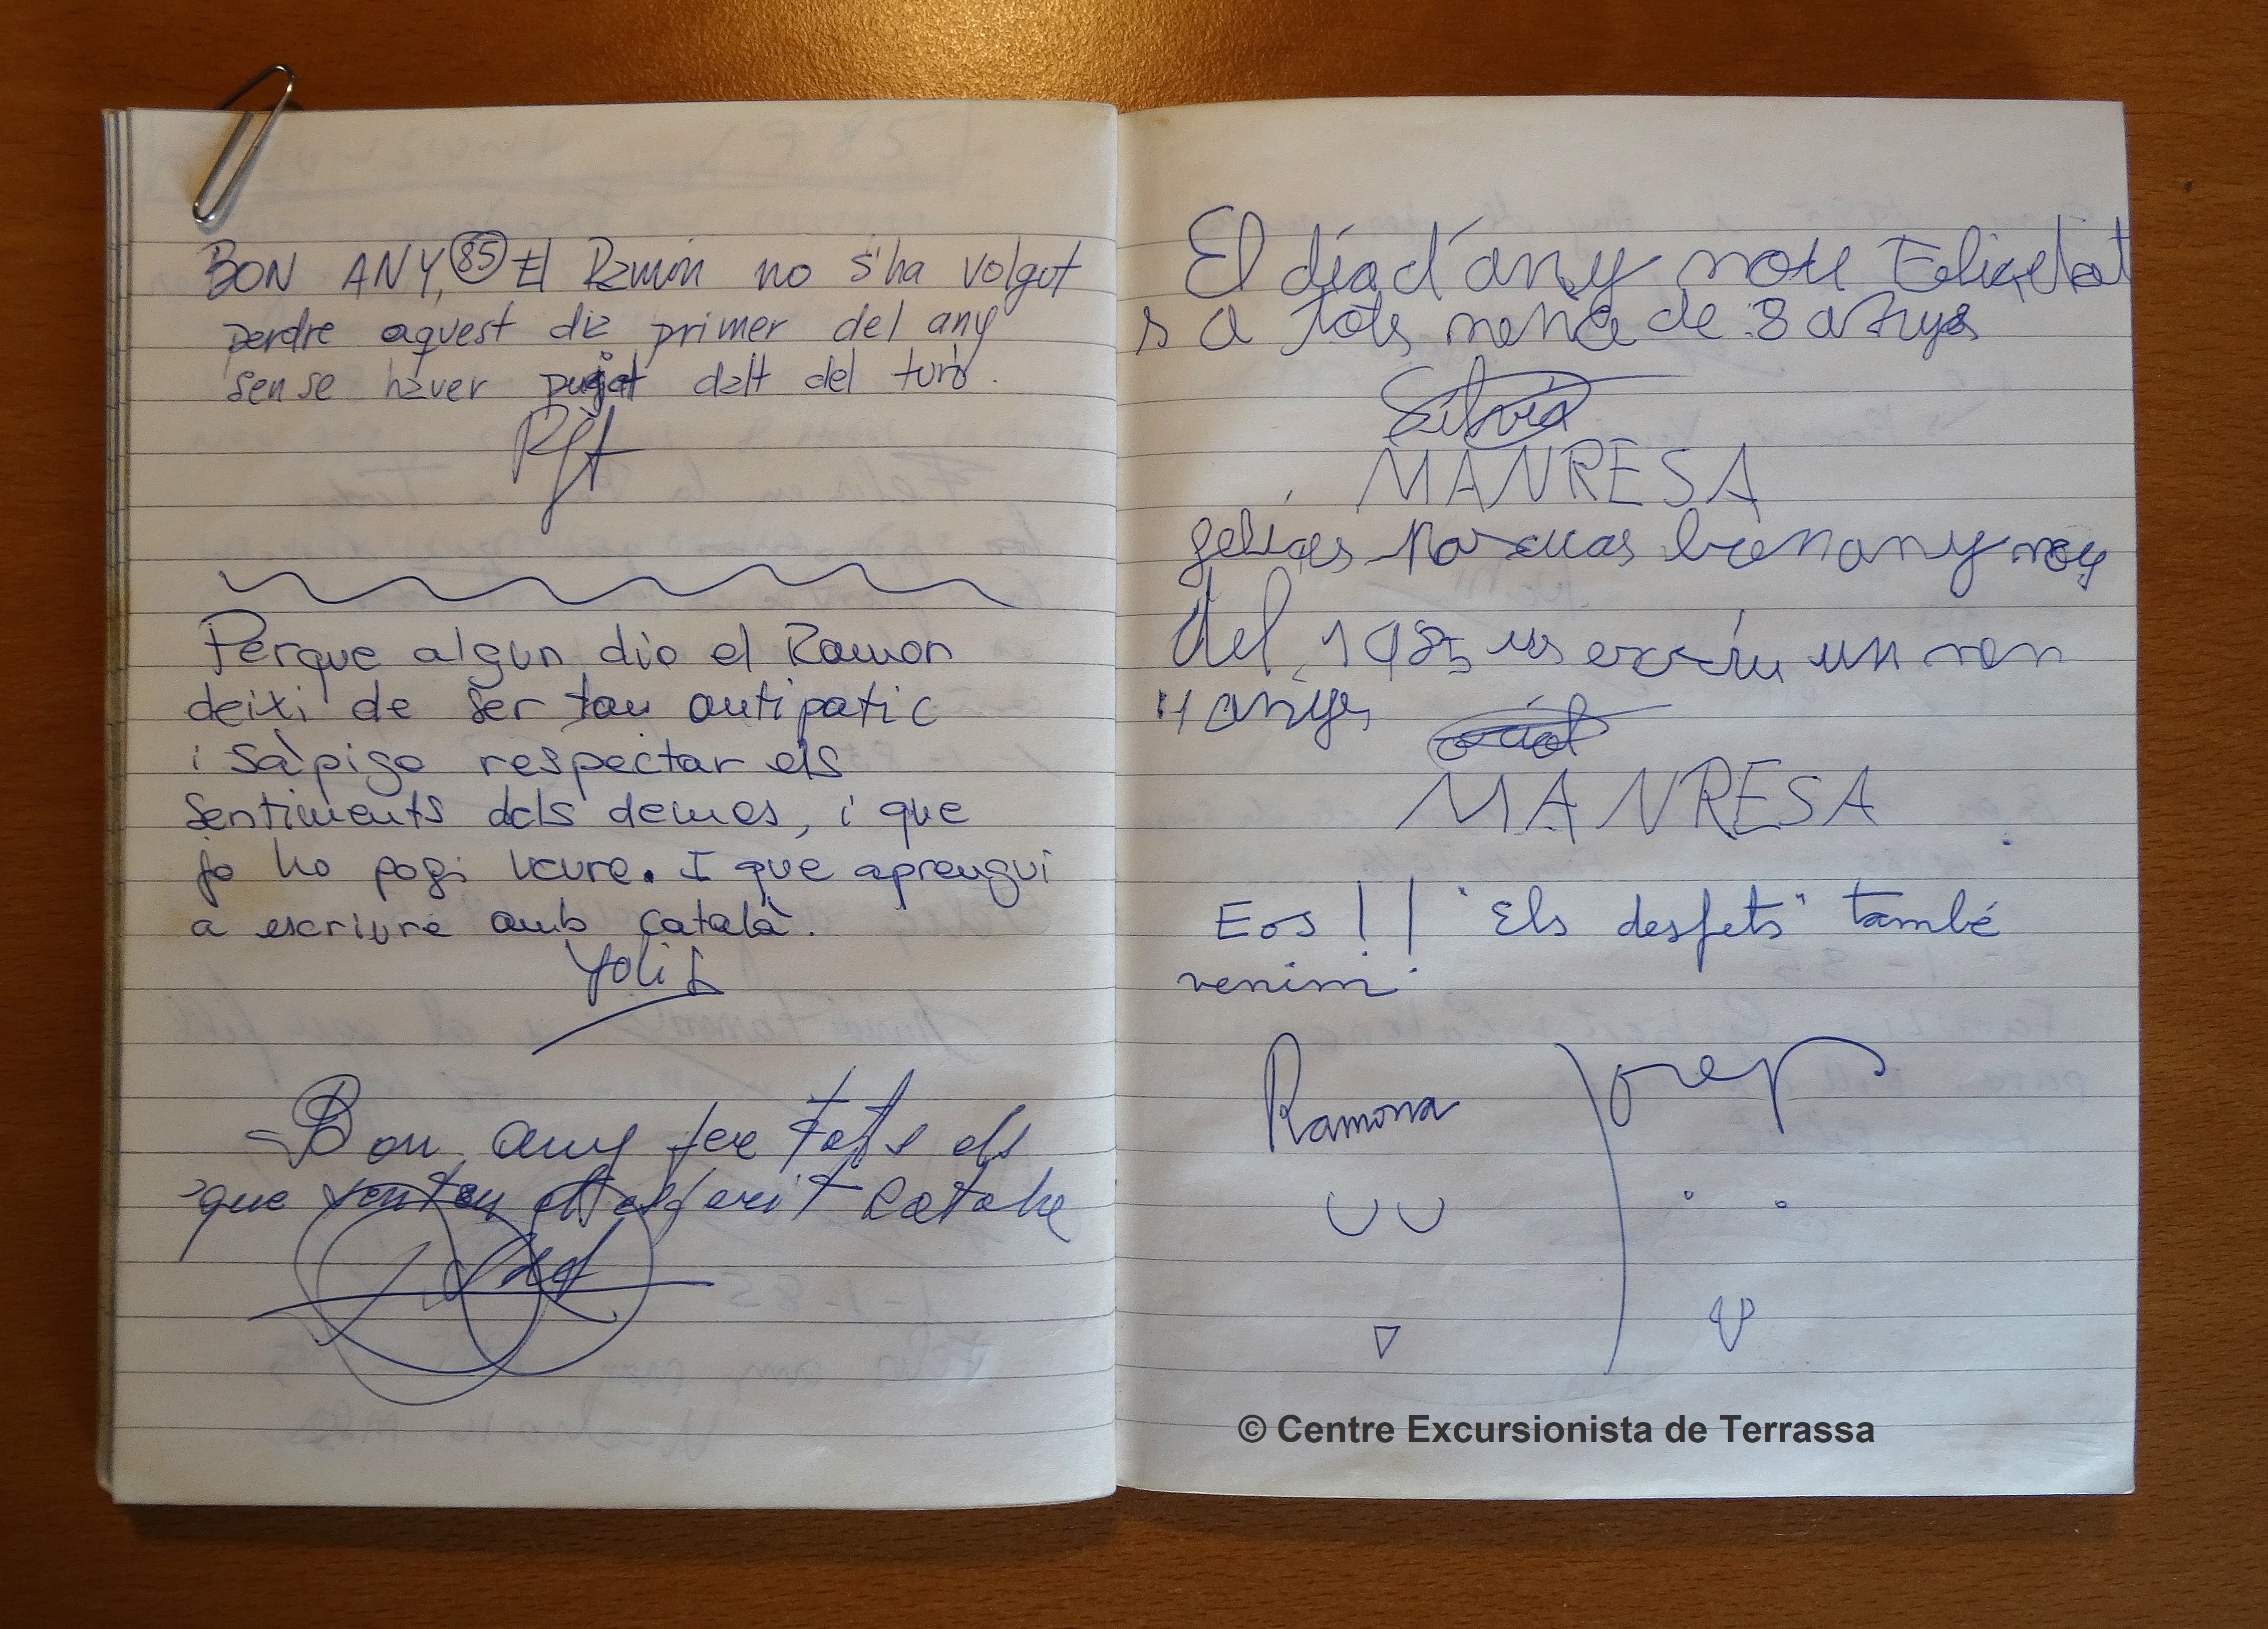 BON ANY, 85 El Ramón no s'ha volgut
perdre aquest dia primer del any
sense haver pujat dalt del turó.
Perque algun dia el Ramon
deixi de ser tan antipatic
i sàpiga respectar els
sentiments dels demes, i que
jo ho pogi veure. I que aprengui
a escriure amb català.
Yoli
Bon any per tots els
que senten el esperit catala
El día d'any nou Felicitat
s a tots nena de 8 anys
Silvia
MANRESA
felices Pascuas bon any nou
del 1985 us escriu un nen
4 anys
MANRESA
Eos!! "Els desfets" també
venim
Ramona Josep
© Centre Excursionista de Terrassa